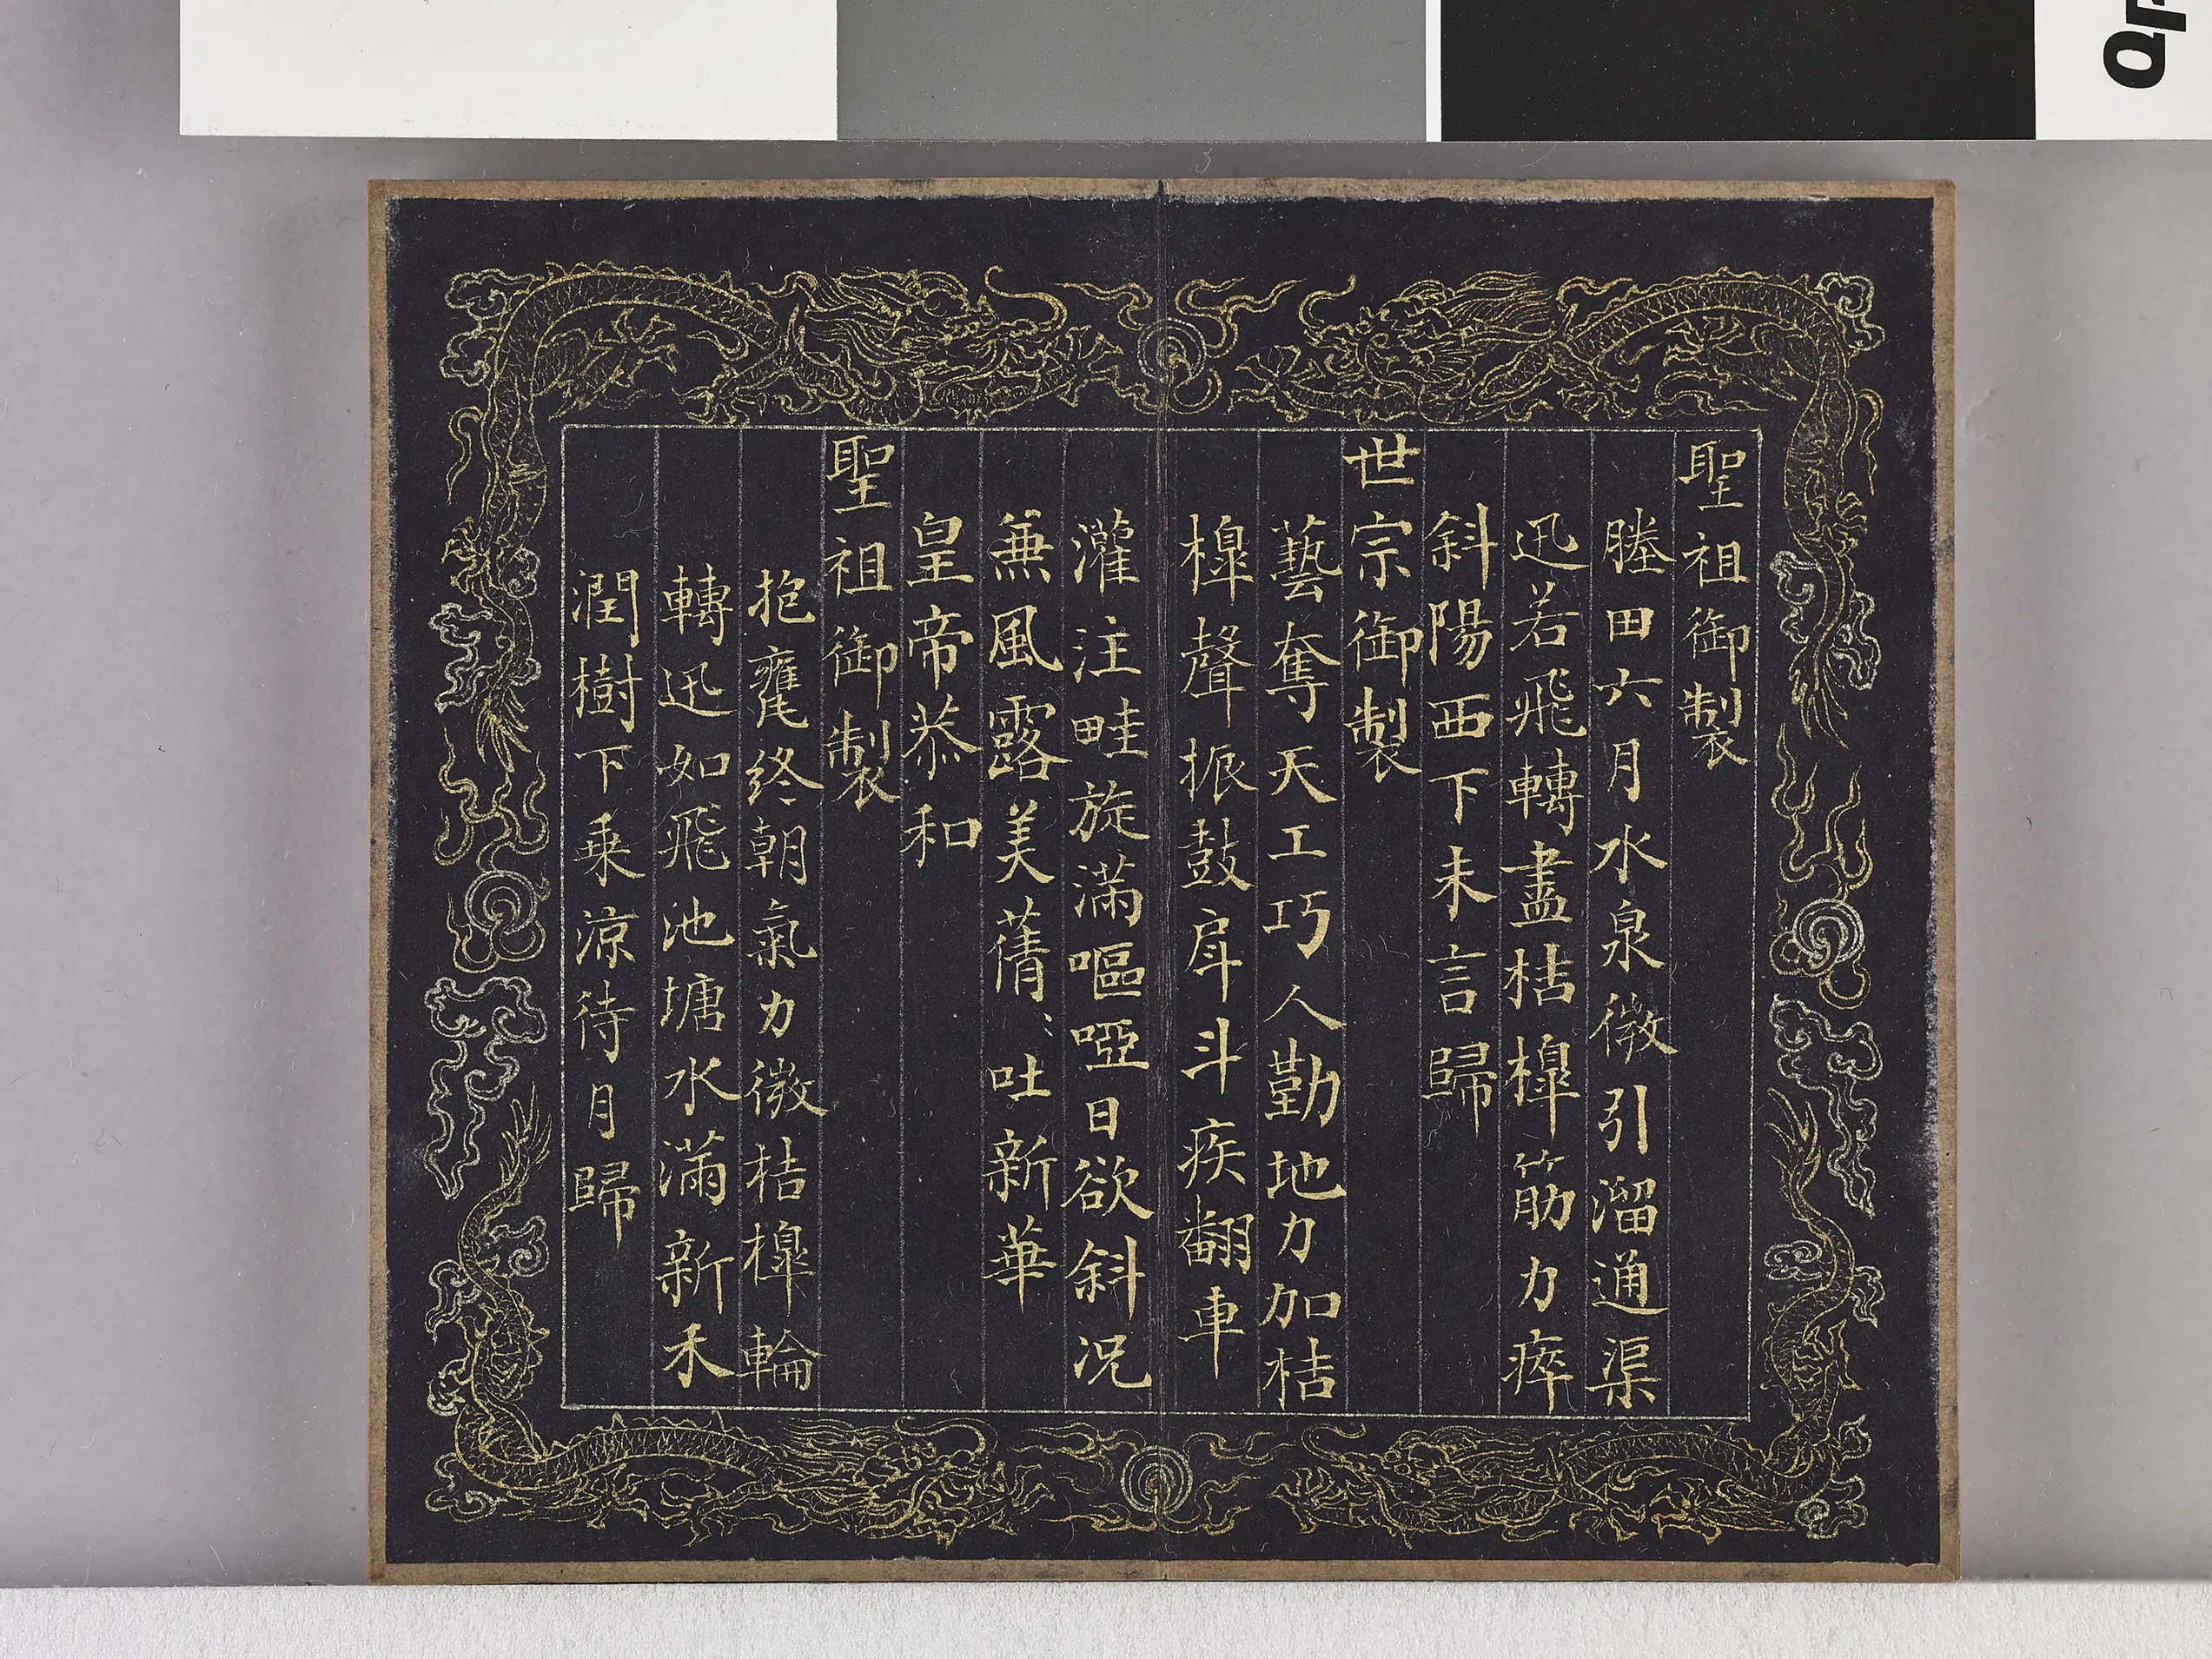 聖祖御製
塍田六月水泉微引溜通渠
迅若飛轉盡桔槔筋力瘁
斜陽西下未言歸
世宗御製
藝奪天工巧人勤地力加桔
槔聲振鼓戽斗疾翻車
灌注畦旋滿嘔啞日欲斜況
無風露美蒨〻吐新華
皇帝恭和
聖祖御製
抱甕終朝氣力微桔槔輪
轉迅如飛池塘水滿新禾
潤樹下乗涼待月歸